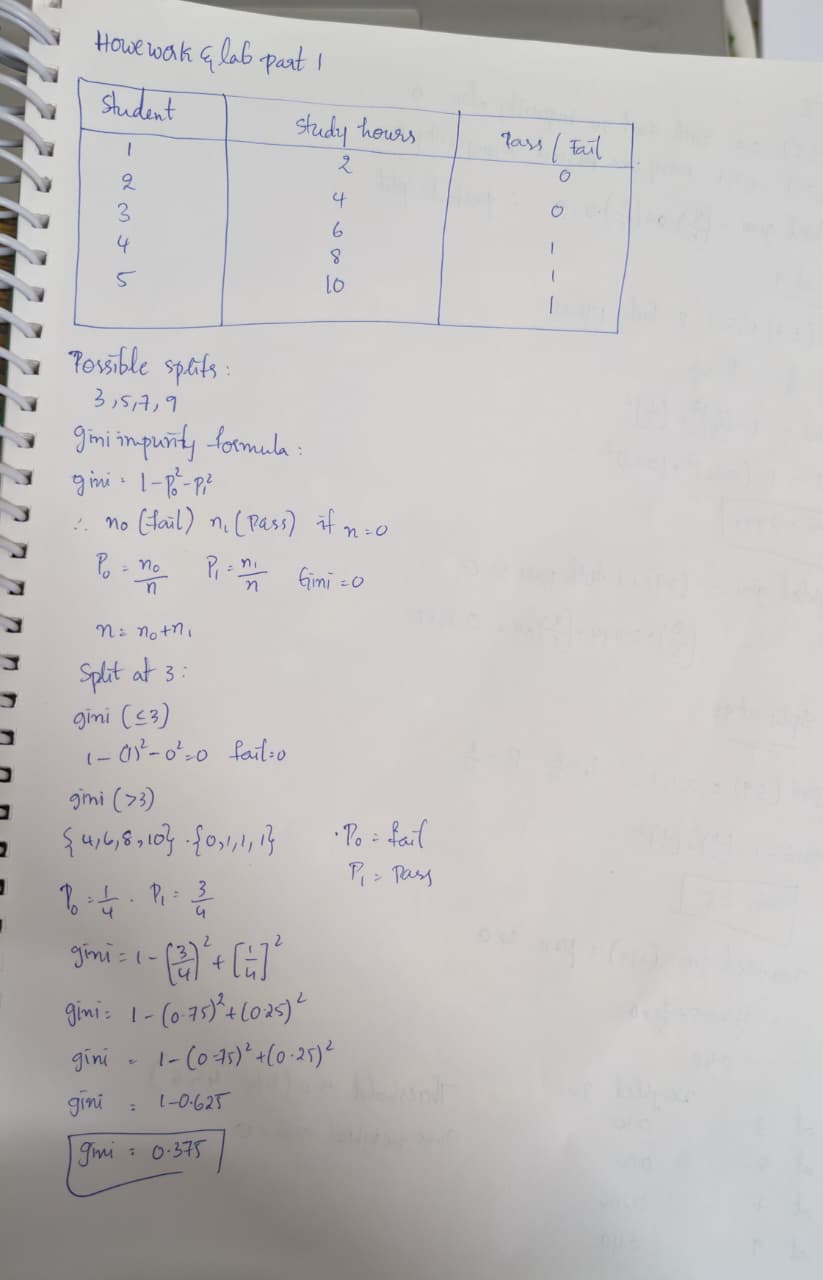 Howework & lab part 1
Student Study hours Pass / Fail
1 2 0
2 4 0
3 6 1
4 8 1
5 10 1
Possible splits:
3,5,7,9
gini impurity formula:
gini = 1-P₀²-P₁²
∴ n₀ (fail) n₁ (pass) if n=0
P₀ = n₀/n P₁ = n₁/n Gini = 0
n = n₀+n₁
Split at 3:
gini (≤3)
1 - (1)² - 0² = 0 fail=0
gini (>3)
{4,6,8,10} · {0,1,1,1} · P₀ = fail
P₁ = pass
P₀ = 1/4 · P₁ = 3/4
gini = 1 - [3/4]² + [1/4]²
gini = 1 - (0.75)² + (0.25)²
gini = 1 - (0.75)² + (0.25)²
gini = 1-0.625
gini = 0.375